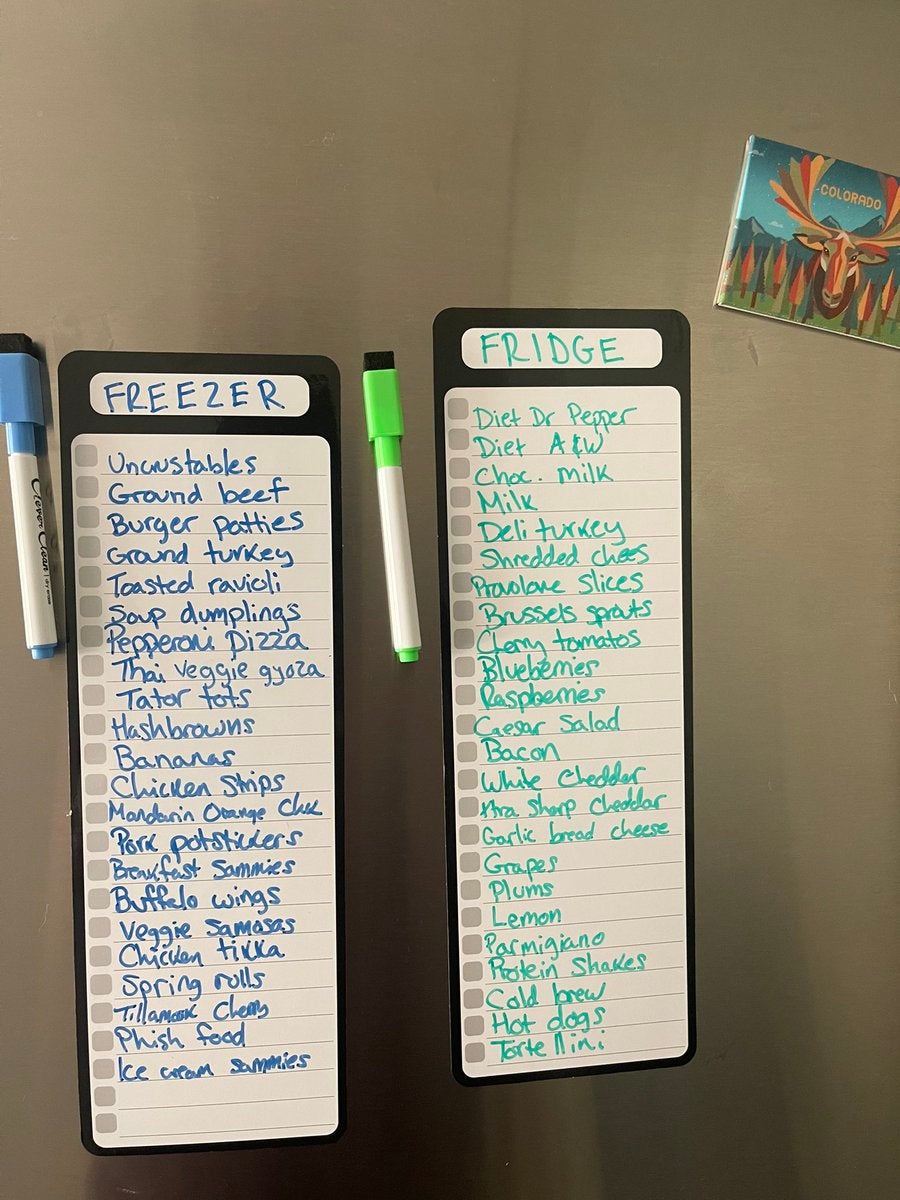 COLORADO
FREEZER
Uncrustables
Ground beef
Burger patties
Ground turkey
Toasted ravioli
Soup dumplings
Pepperoni pizza
Thai veggie gyoza
Tator tots
Hashbrowns
Bananas
Chicken strips
Mandarin Orange Chk
Pork potstickers
Breakfast Sammies
Buffalo wings
Veggie Samosas
Chicken tikka
Spring rolls
Tillamook Cherry
Phish food
Ice cream sammies
Clever Clean
FRIDGE
Diet Dr Pepper
Diet A&W
Choc. milk
Milk
Deli turkey
Shredded chees
Provolone Slices
Brussels sprouts
Cherry tomatos
Blueberries
Raspberries
Caesar Salad
Bacon
White Cheddar
Xtra Sharp Cheddar
Garlic bread cheese
Grapes
Plums
Lemon
Parmigiano
Protein Shakes
Cold brew
Hot dogs
Tortellini